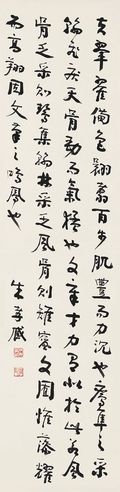 夫翬翟備色翾翥百步肌豐而力沉也鷹隼乏采
翰飛戾天骨勁而氣猛也文章才力有似於此若風
骨乏采則鷙集翰林采乏風骨則雉竄文囿惟藻耀
而高翔固文章之鳴鳳也
朱孝臧